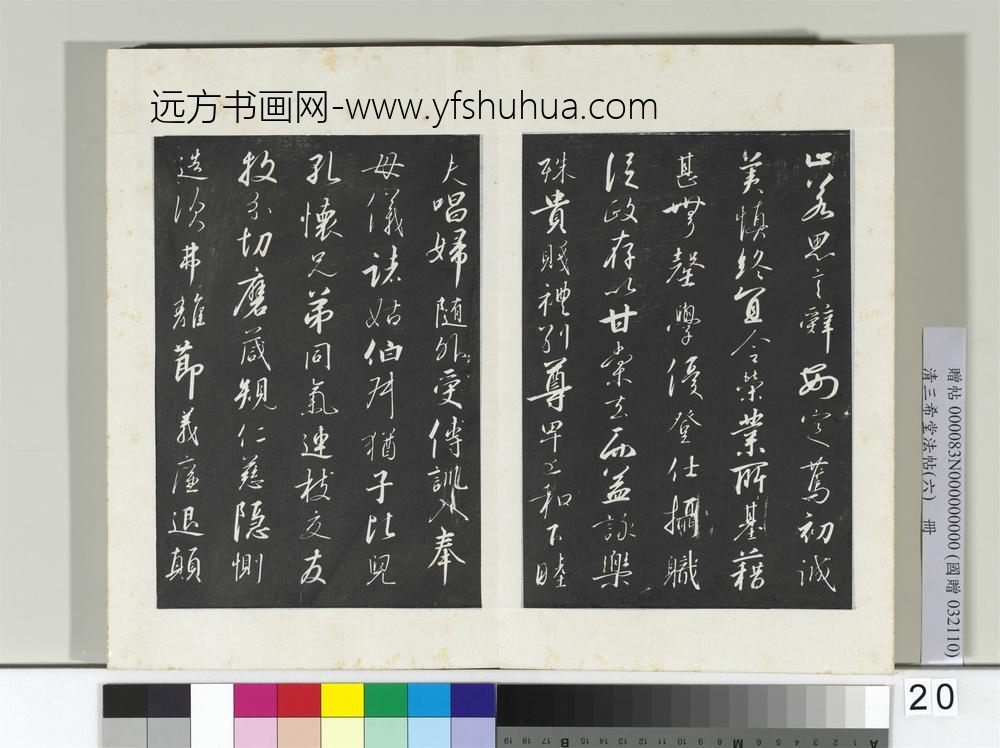 远方书画网-www.yfshuhua.com
止若思言辭安定篤初誠
美慎終宜令榮業所基藉
甚無罄學優登仕攝職
從政存以甘棠去而益詠樂
殊貴賤禮別尊卑上和下睦
夫唱婦隨外受傅訓入奉
母儀諸姑伯叔猶子比兒
孔懷兄弟同氣連枝交友
投分切磨箴規仁慈隱惻
造次弗離節義廉退顛
贈帖 000083N000000000 (國贈 032110)
清三希堂法帖(六) 冊
20
A 1 2 3 4 5 6 M 8 9 10 11 12 13 14 15 B 17 18 19